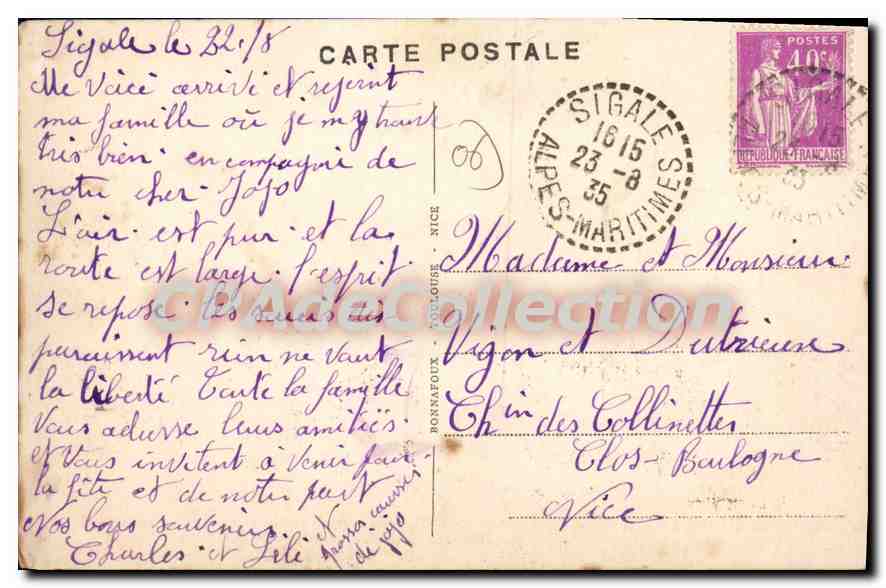 Sigale le 22./8
CARTE POSTALE
Me Voici arrivé et rejoint
ma famille où je m'y trouve
très bien. en compagnie de
notre cher Jojo
L'air est pur et la
route est large. l'esprit
se repose. les soucis dis
paraissent rien ne vaut
la liberté Toute la famille
Vous adresse leurs amitiés
et Vous invitent à venir pour
la fête et de notre part
Nos bons souvenirs
Charles et Lili et
grosses caresses
de jojo
06
SIGALE
16 15
23 -8
35
ALPES-MARITIMES
POSTES
40c
RÉPUBLIQUE FRANÇAISE
BONNAFOUX - TOULOUSE - NICE
Madame et Monsieur
Vigon et Dutrieux
Chin des Collinettes
Clos-Boulogne
Nice
CPAdeCollection